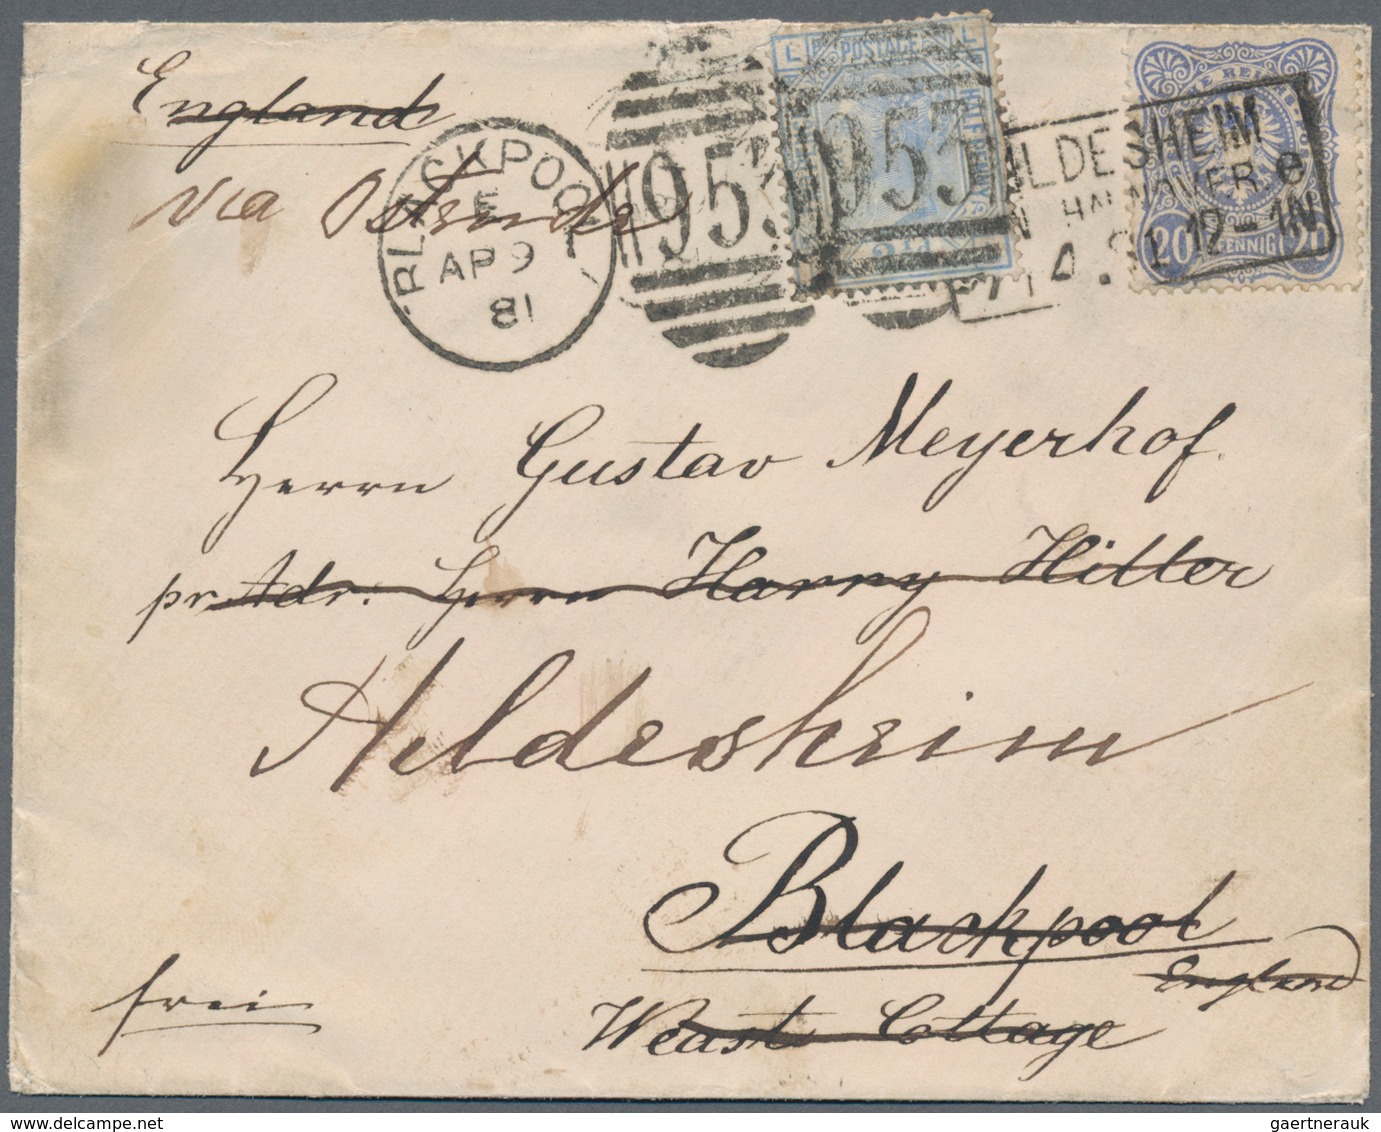 England
via Ostende
BLACKPOOL
E
AP 9
81
953
953
L POSTAGE L
HALF PENNY
HILDESHEIM
IN HANNOVER. e
7 4 81 12-1N
20 PFENNIG 20
Herrn Gustav Meyerhof.
pr Adr: Herrn Harry Hitter
Hildesheim
Blackpool
England
West Cottage
frei
gaertnerauk